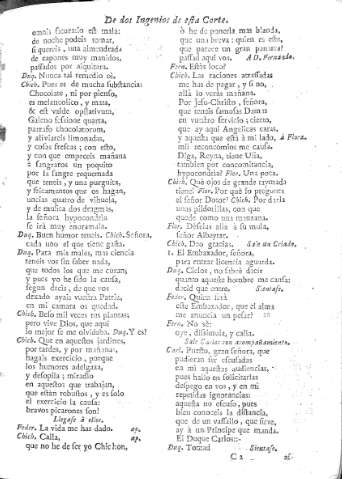 De dos Ingenios de esta Corte.
omais sicutulo est mala:
de noche podeis tomar,
si quereis, una almendrada
de capones muy manidos,
passados por alquitara.
Duq. Nunca tal remedio oí.
Chich. Pues es de mucha substancia:
Chocolate, ni por pienso,
es melancolico, y mata,
& est valde opilativum,
Galeno sessione quarta,
parrafo chocolatorum,
y aliviareis limonadas,
y cosas frescas; con esto,
y con que empeceis mañana
à sangraros un poquito
por la sangre requemada
que teneis, y una purguita,
y fricamientos que os hagan,
uncias quatro de viñuela,
y de musica dos dragmas,
la señora hypocondria
se irá muy enoramala.
Duq. Buen humor teneis. Chich. Señora,
cada uno el que tiene gasta.
Duq. Para mis males, mas ciencia
teneis vos sin saber nada,
que todos los que me curan;
y pues yo he sido la causa,
segun decis, de que vos
dexado ayais vuestra Patria,
en mi camara os quedad.
Chich. Beso mil veces tus plantas;
pero vive Dios, que aqui
lo mejor se me olvidaba. Duq. Y es?
Chich. Que en aquestos jardines,
por tardes, y por mañanas,
hagais exercicio, porque
los humores adelgaza,
y desopila; miradlo
en aquestos que trabajan,
que están robustos, y es solo
el exercicio la causa:
bravos picarones son!
Llegase à ellos.
Feder. La vida me has dado. ap.
Chich. Calla, ap.
que no he de ser yo Chichon,
ò he de ponerla mas blanda,
que una breva: quien es este,
que parece un gran panarra?
passad aqui vos. A D. Fernando.
Fern. Estais loco?
Chich. Las raciones atrassadas
me has de pagar, y si no,
allá lo verás mañana.
Por Jesu-Christo, señora,
que teneis famosas Damas
en vuestro servicio; cierto,
que ay aqui Angelicas caras,
y aquesta que està à mi lado, A Flora.
mil reconcomios me causa.
Diga, Reyna, tiene Usia,
tambien por concomitancia,
hypocondria? Flor. Una pota.
Chich. Què ojos de grande taymada
teneis! Flor. Por què lo pregunta
el señor Dotor? Chich. Por darla
unas pildorillas, con que
quede como una manzana.
Flor. Deselas alla à su mula,
señor Albeytar.
Chich. Deo gracias. Sale un Criado.
1. El Embaxador, señora,
para entrar licencia aguarda.
Duq. Cielos, no sabrà darle
quanto aqueste hombre me cansa:
decid que entre. Sientase.
Feder. Quien serà
este Embaxador, que el alma
me anuncia un pesar?
Fern. No sè:
oye, dissimula, y calla.
Sale Carlos con acompañamiento.
Carl. Puesto, gran señora, que
pudieran ser escusadas
en mi aquestas audiencias,
pues hallo en solicitarlas
despego en vos, y en mi
repetidas ignorancias:
aquesta no escuso, pues
bien conoceis la distancia,
que de un vassallo, que sirve,
ay à un Principe que manda.
El Duque Carlos:-
Duq. Tomad Sientase.
C 2